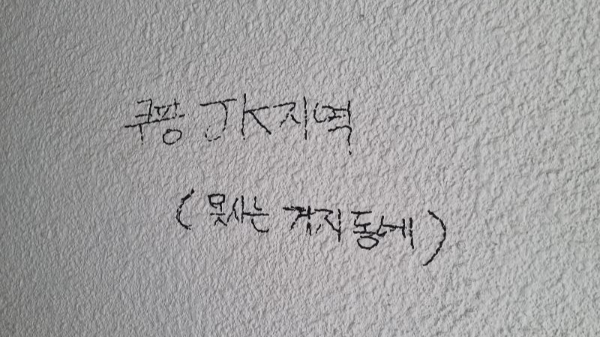 쿠팡 JK지역
(못사는 거지 동네)